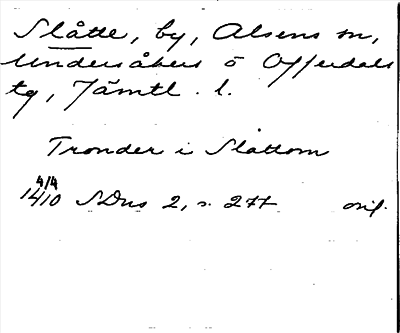 Slåtte, by, Alsens sn,
Undersåkers o Offerdals
tg, Jämtl. l.
Tronder i Slåttom
4/4
1410 SDns 2, s. 277 orig.